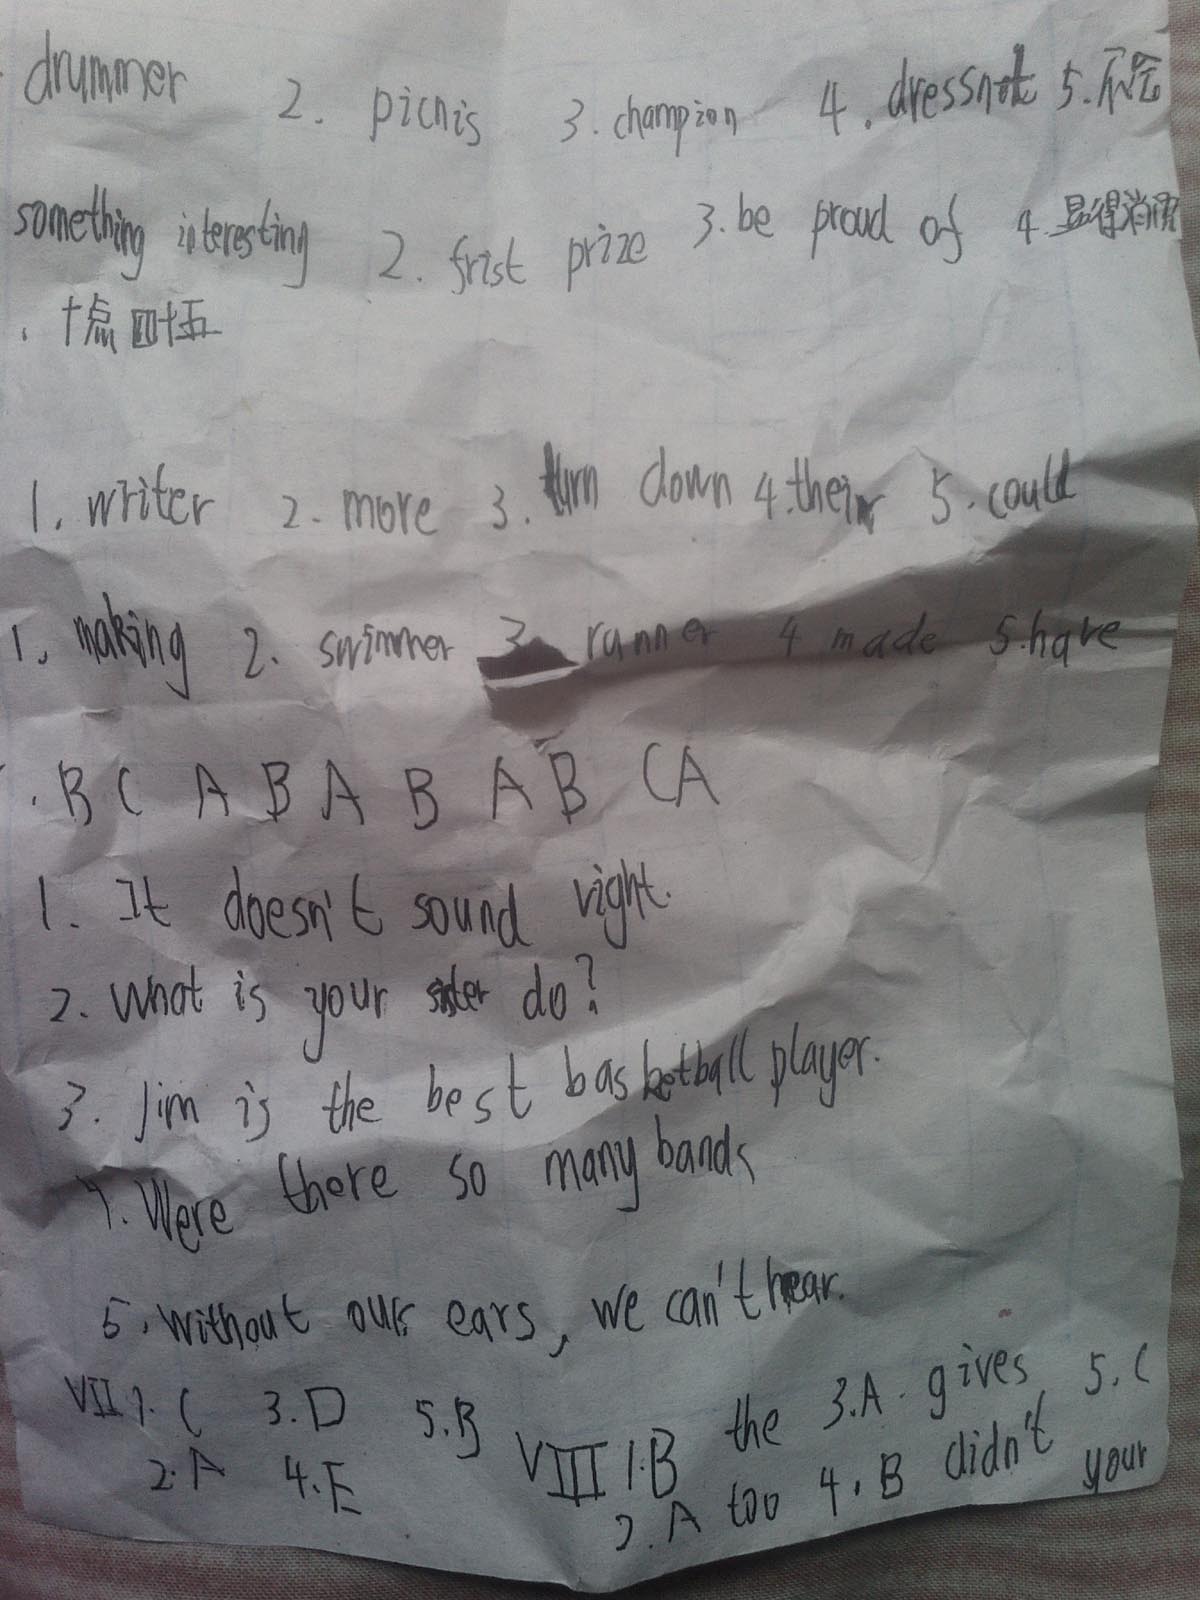 drummer 2. picnis 3. champion 4. 5.
something interesting 2. frist prize 3. be proud of 4. 显得消沉
. 十点四十五
1. writer 2. more 3. turn down 4. their 5. could
1. making 2. swimmer 3. runner 4 made 5. have
. B C A B A B A B C A
1. It doesn't sound right.
2. What is your sister do?
3. Jim is the best basketball player.
4. Were there so many bands
5. Without ours ears, we can't hear.
VII 1. C 3. D 5. B VIII 1. B the 3. A. gives 5. C
2. A 4. E 2. A too 4. B didn't your